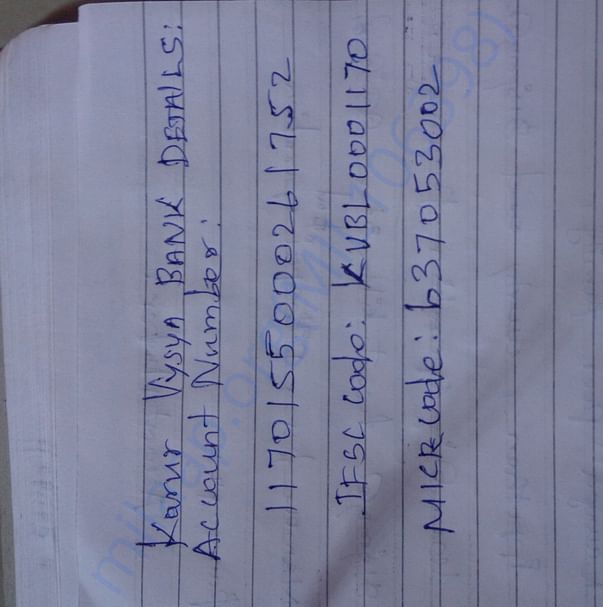 Karur Vysya BANK DETAILS:
Account Number:
1170155000261752
IFSC code: KVBL0001170
MICR code: 637053002